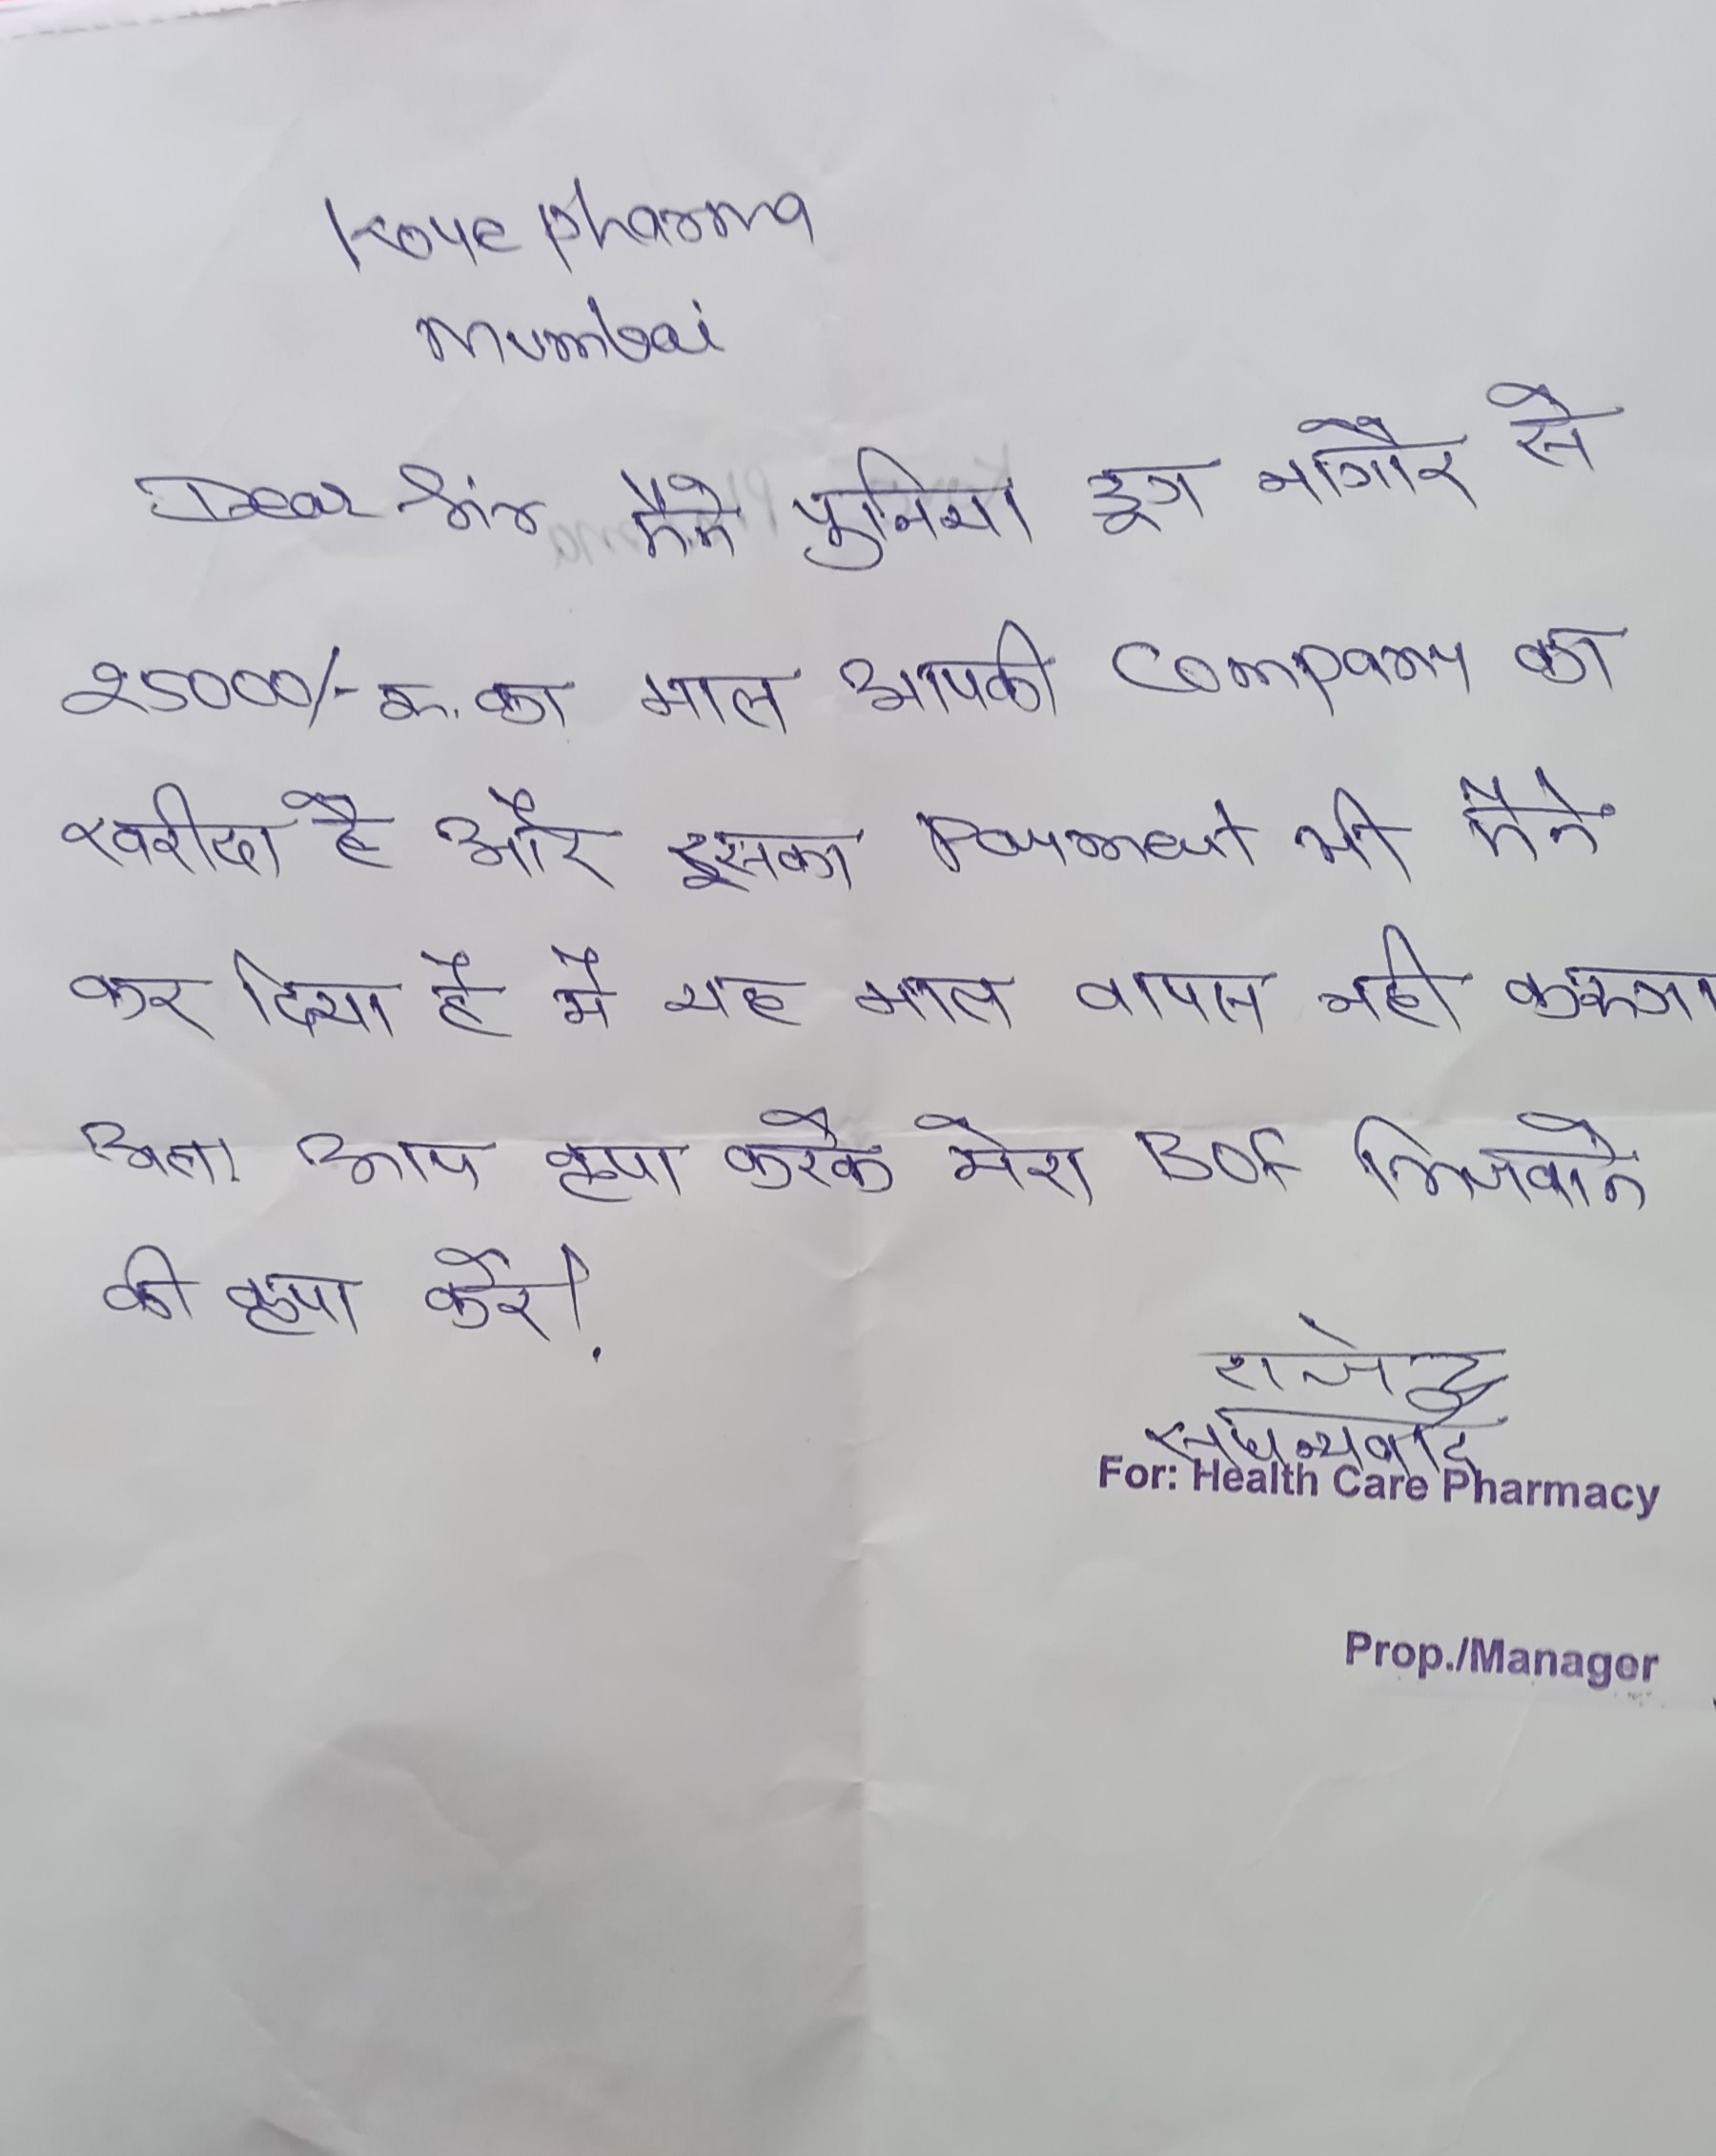 Koye pharma
Mumbai
Dear Sir मैंने पुनिया ड्रग नागौर से
25000/- रु. का माल आपकी Company का
खरीदा है और इसका Payment भी मैंने
कर दिया है मैं यह माल वापस नही करूगा
अतः आप कृपा करके मेरा BOF भिजवाने
की कृपा करें!
राजेन्द्र
सधन्यवाद
For: Health Care Pharmacy
Prop./Manager